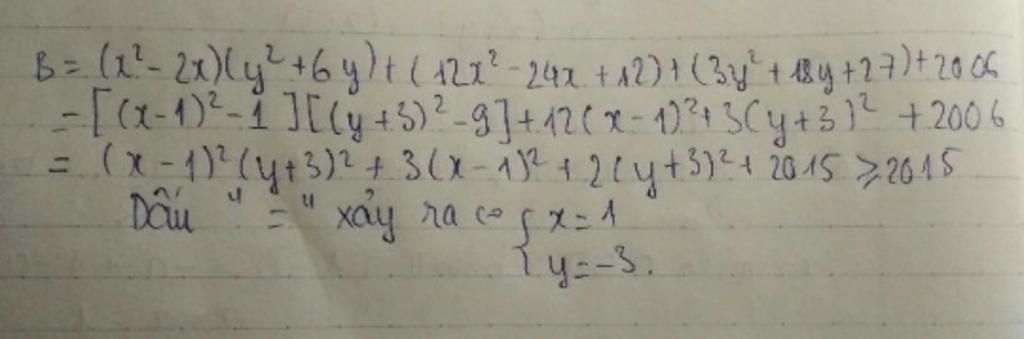 B = (x² - 2x)(y² + 6y) + (12x² - 24x + 12) + (3y² + 18y + 27) + 2006
= [(x-1)² - 1][(y+3)² - 9] + 12(x-1)² + 3(y+3)² + 2006
= (x-1)²(y+3)² + 3(x-1)² + 2(y+3)² + 2015 ⩾ 2015
Dấu "=" xảy ra ⇔ { x = 1
y = -3.